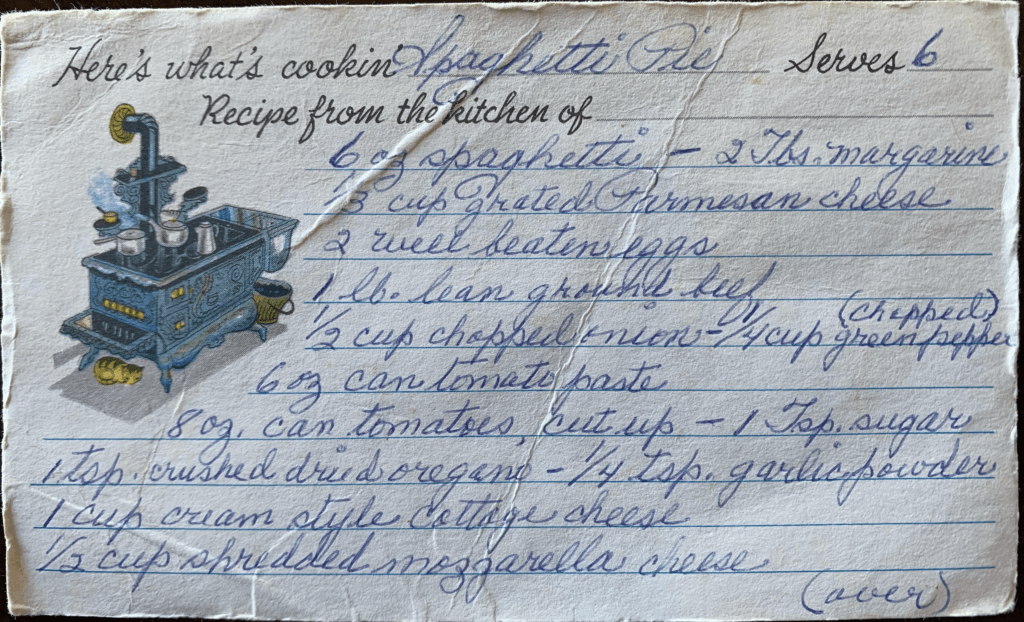 Here's what's cookin' Spaghetti Pie Serves 6
Recipe from the kitchen of
6 oz spaghetti - 2 Tbs. margarine
1/3 cup grated Parmesan cheese
2 well beaten eggs
1 lb. lean ground beef
1/2 cup chopped onion - 1/4 cup green pepper (chopped)
6 oz can tomato paste
8 oz. can tomatoes, cut up - 1 Tsp. sugar
1 tsp. crushed dried oregano - 1/4 tsp. garlic powder
1 cup cream style cottage cheese
1/2 cup shredded mozzarella cheese
(over)